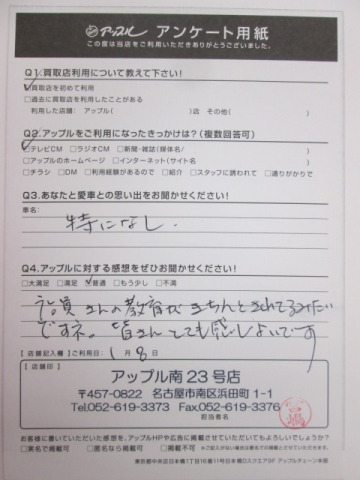 アップル アンケート用紙
この度は当店をご利用いただきありがとうございました。
Q1.買取店利用について教えて下さい!
□買取店を初めて利用
□過去に買取店を利用したことがある
利用した店舗:アップル( )店 その他( )
Q2.アップルをご利用になったきっかけは?(複数回答可)
□テレビCM □ラジオCM □新聞・雑誌(媒体名/ )
□アップルのホームページ □インターネット(サイト名 )
□チラシ □DM □利用経験があるので □紹介 □スタッフに誘われて □通りがかりで
Q3.あなたと愛車との思い出をお聞かせください!
車名:
特になし.
Q4.アップルに対する感想をぜひお聞かせください!
□大満足 □満足 □普通 □もう少し □不満
さんの教育がきちんとされてるみたい
ですネ。皆さんとても感じよいです
【店舗記入欄】ご利用日: 1月8日
【店舗印】
アップル南23号店
〒457-0822 名古屋市南区浜田町1-1
Tel.052-619-3373 Fax.052-619-3376
担当者名
お客様に書いていただいた感想を、アップルHPや広告に掲載させていただいてもよろしいでしょうか?
□実名で掲載可 □匿名なら掲載可 □掲載不可
東京都中央区日本橋1丁目16番11号日本橋Dスクエア9F アップルチェーン本部